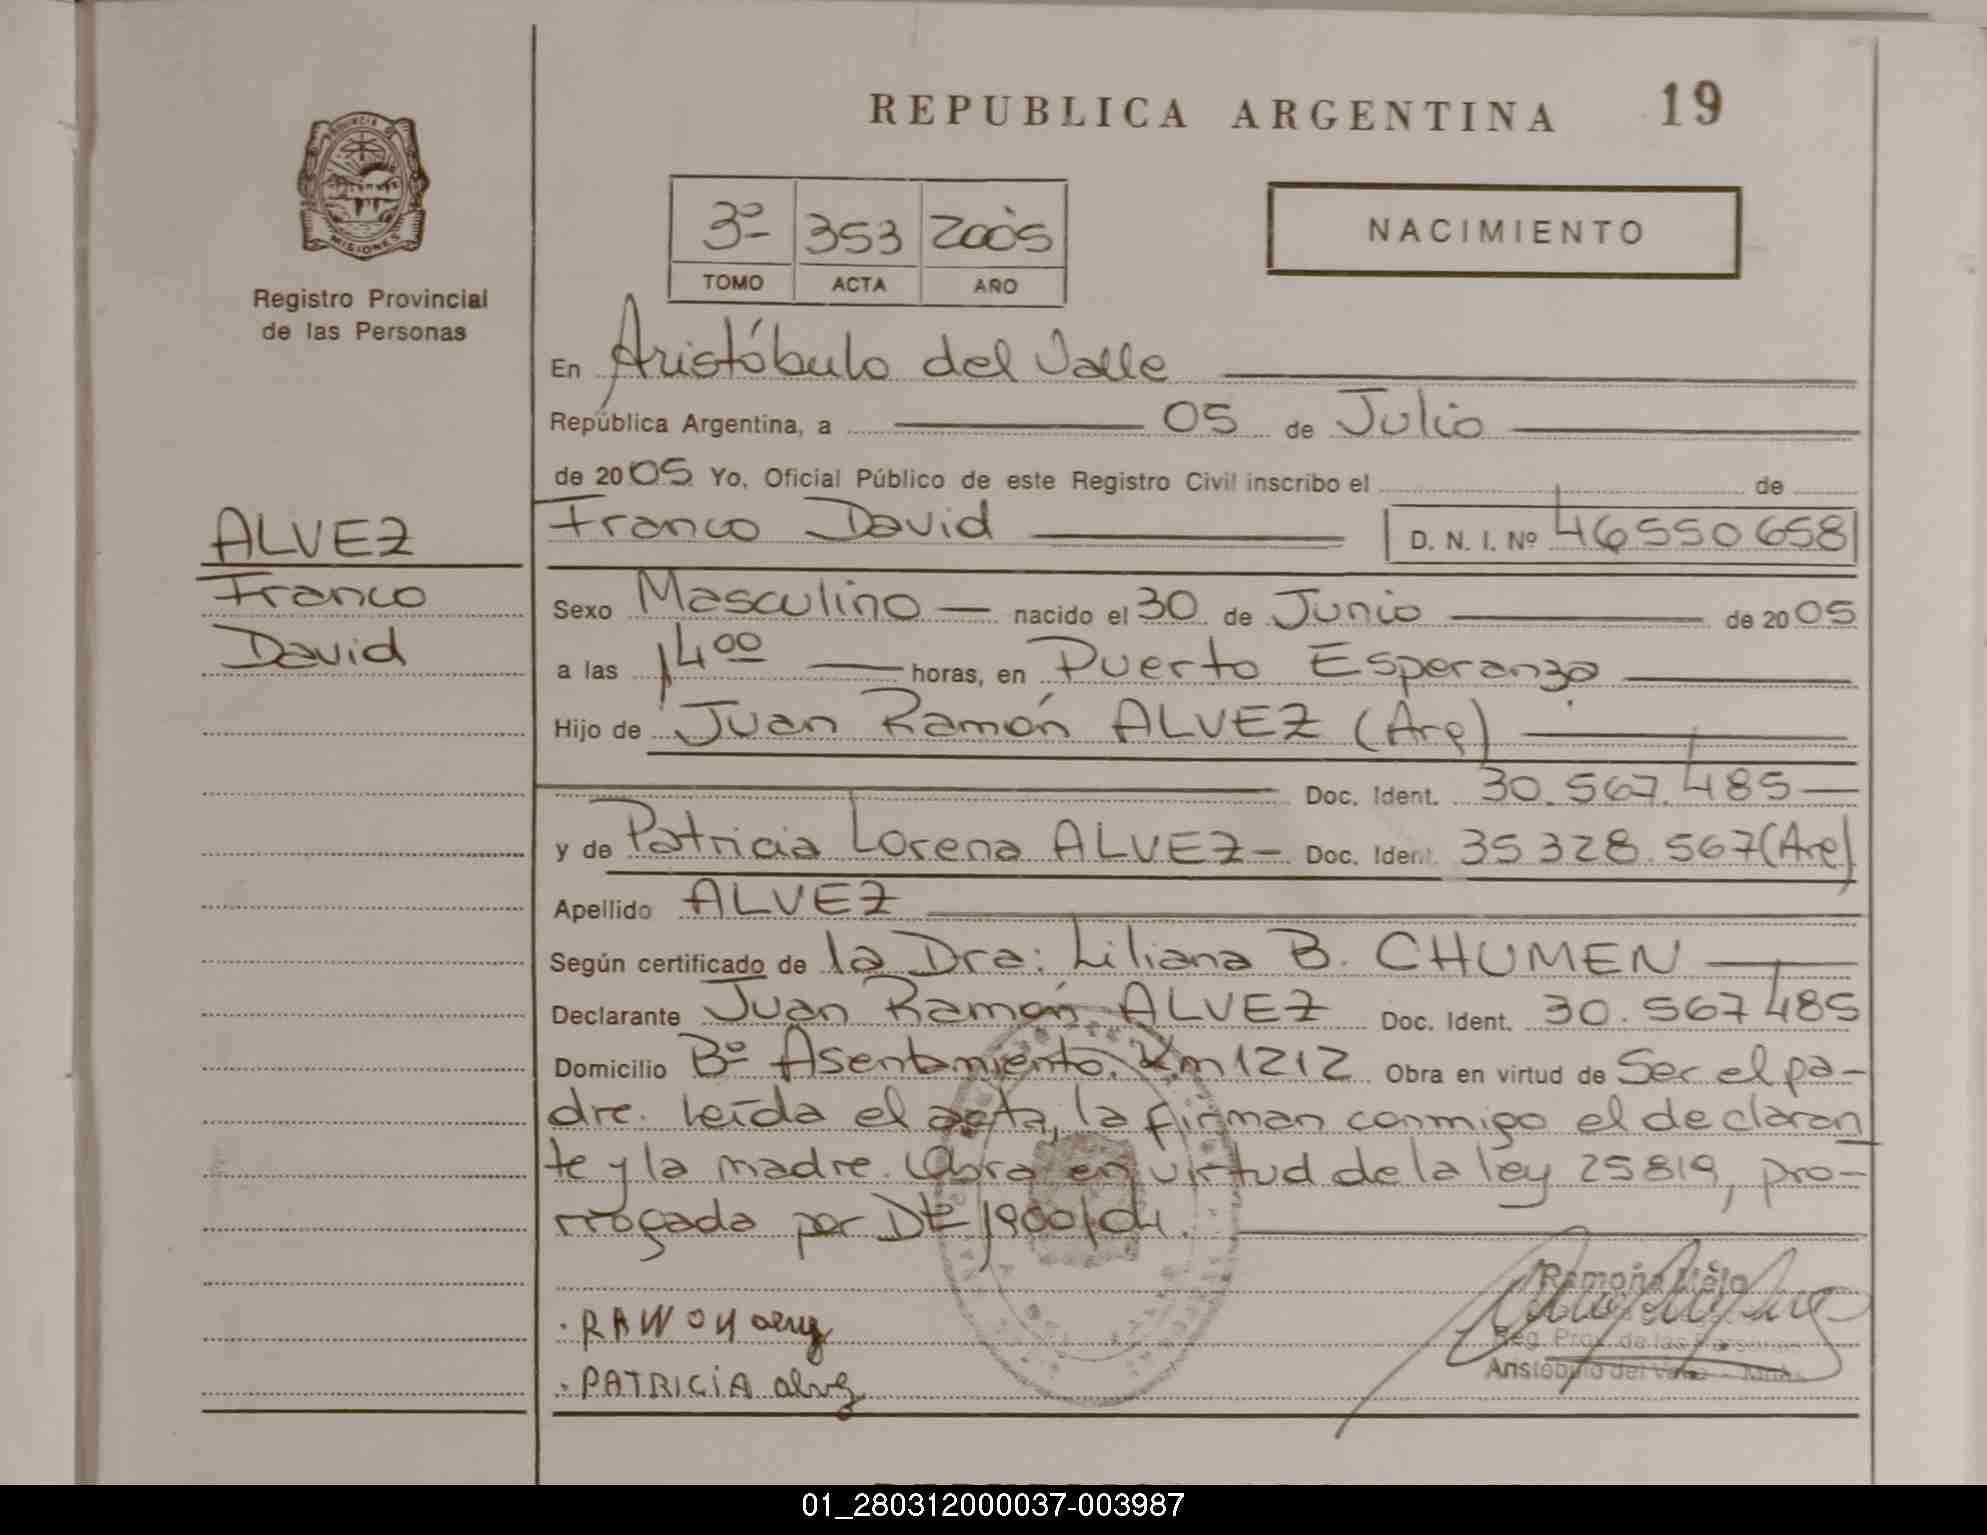 REPUBLICA ARGENTINA 19
PROVINCIA DE
MISIONES
Registro Provincial
de las Personas
3º 353 2005
TOMO ACTA AÑO
NACIMIENTO
En Aristóbulo del Valle
República Argentina, a 05 de Julio
de 2005 Yo, Oficial Público de este Registro Civil inscribo el de
ALVEZ
Franco
David
Franco David D. N. I. Nº 46550658
Sexo Masculino nacido el 30 de Junio de 2005
a las 14 00 horas, en Puerto Esperanza
Hijo de Juan Ramón ALVEZ (Arg)
Doc. Ident. 30.567.485
y de Patricia Lorena ALVEZ Doc. Ident. 35328.567 (Arg)
Apellido ALVEZ
Según certificado de la Dra: Liliana B. CHUMEN
Declarante Juan Ramón ALVEZ Doc. Ident. 30.567485
Domicilio Bº Asentamiento. Km1212 Obra en virtud de Ser el pa-
dre. leída el acta, la firman conmigo el declaran
te y la madre. Obra en virtud de la ley 25819, pro-
rrogada por Dto 1900/04.
Ramona Melo
Reg. Prov. de las Personas
Aristóbulo del Valle - Mnes.
. RAMON alvez
. PATRICIA alvez
01_280312000037-003987